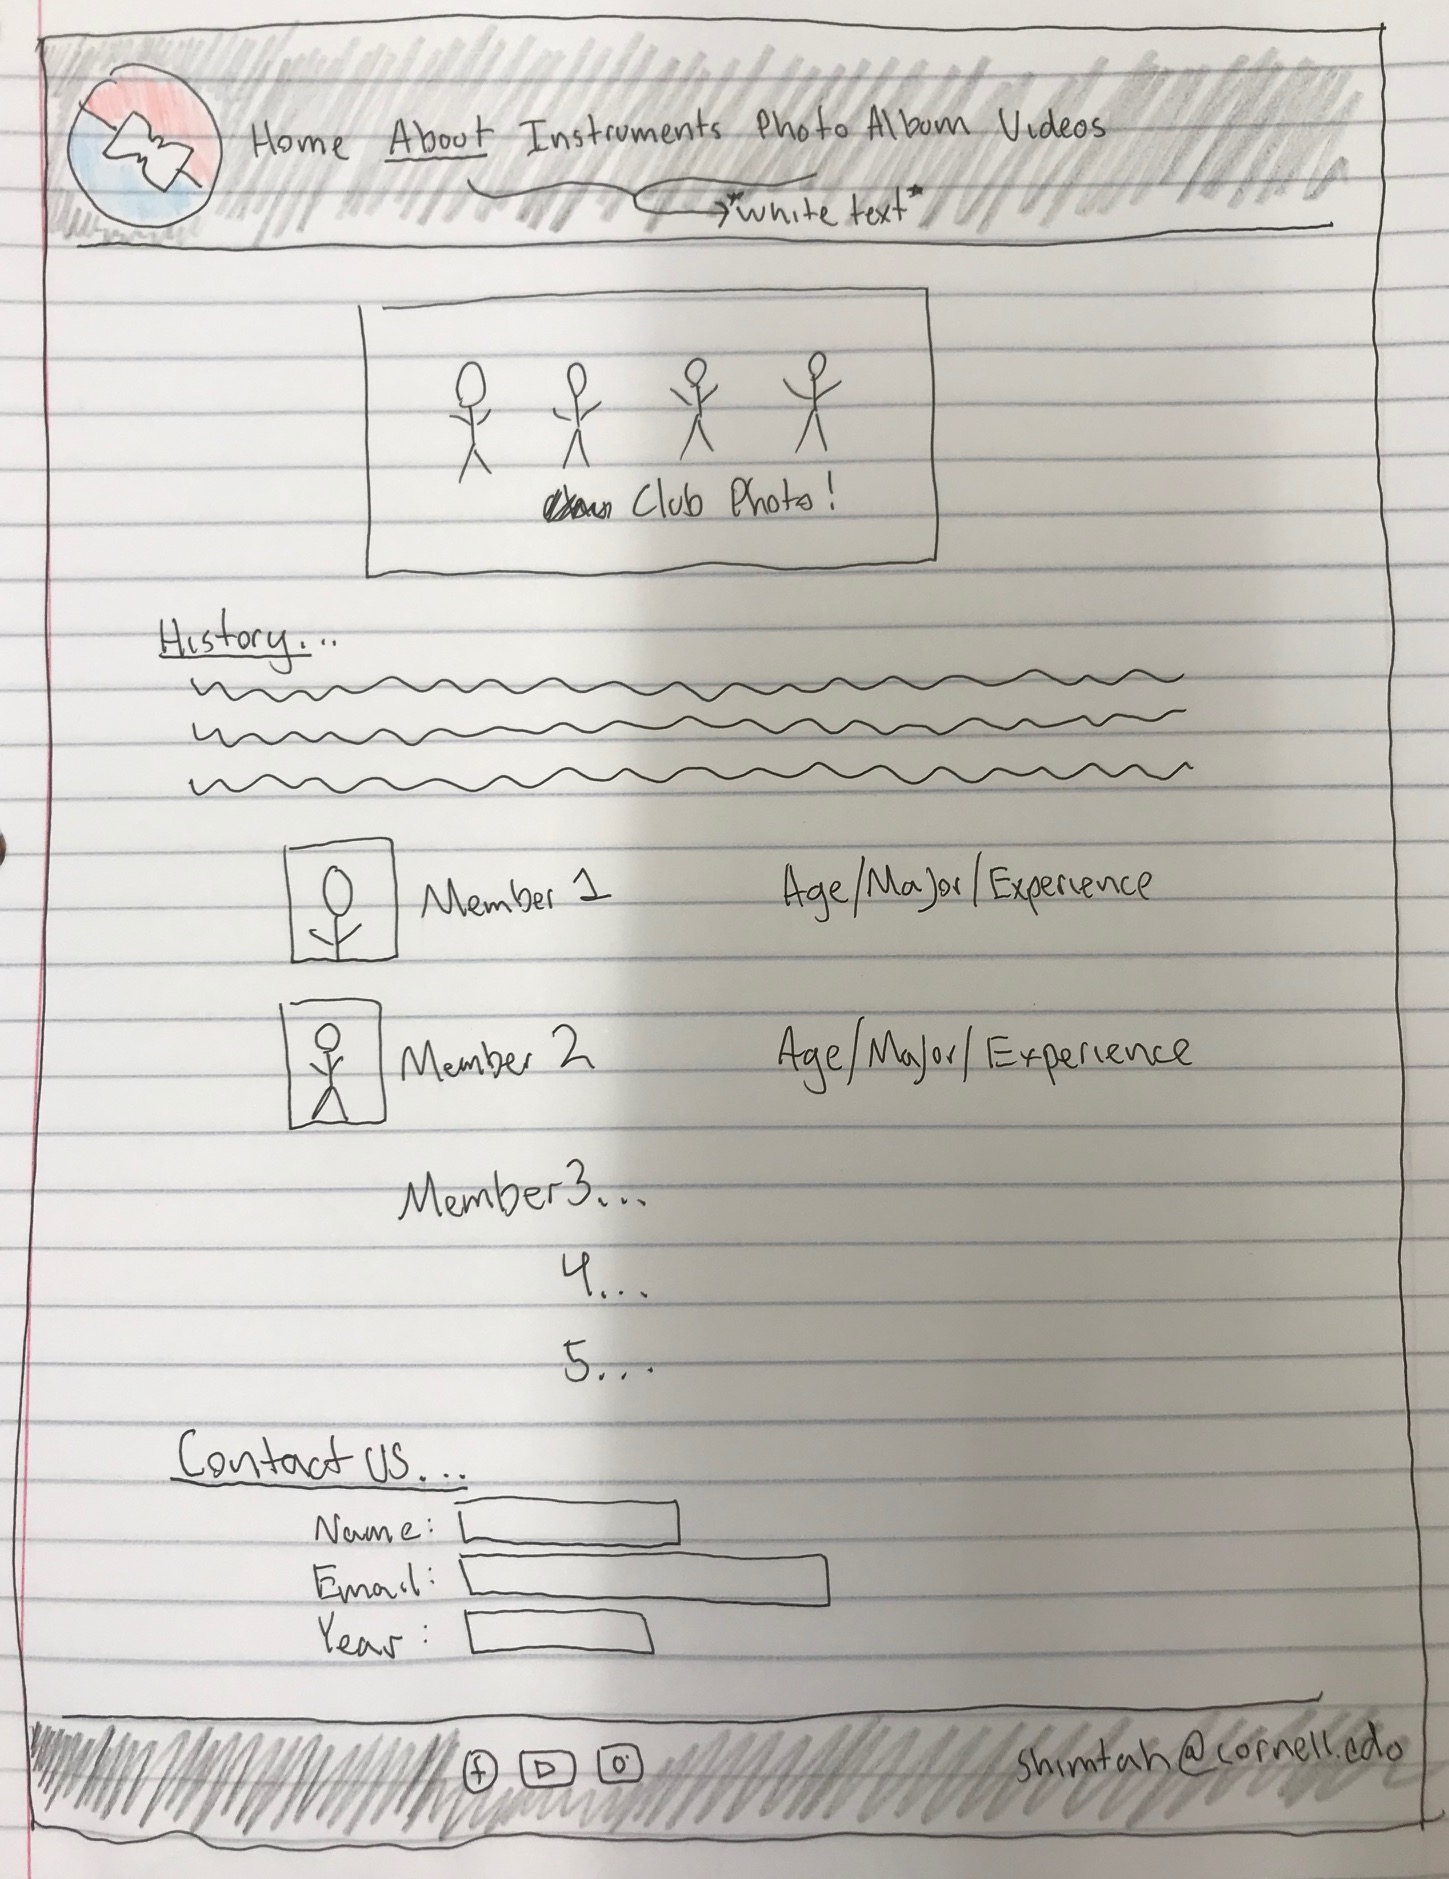 Home About Instruments Photo Album Videos
*white text*
Club Photo!
History...
Member 1 Age/Major/Experience
Member 2 Age/Major/Experience
Member 3...
4...
5...
Contact us...
Name:
Email:
Year:
f shimtah@cornell.edu